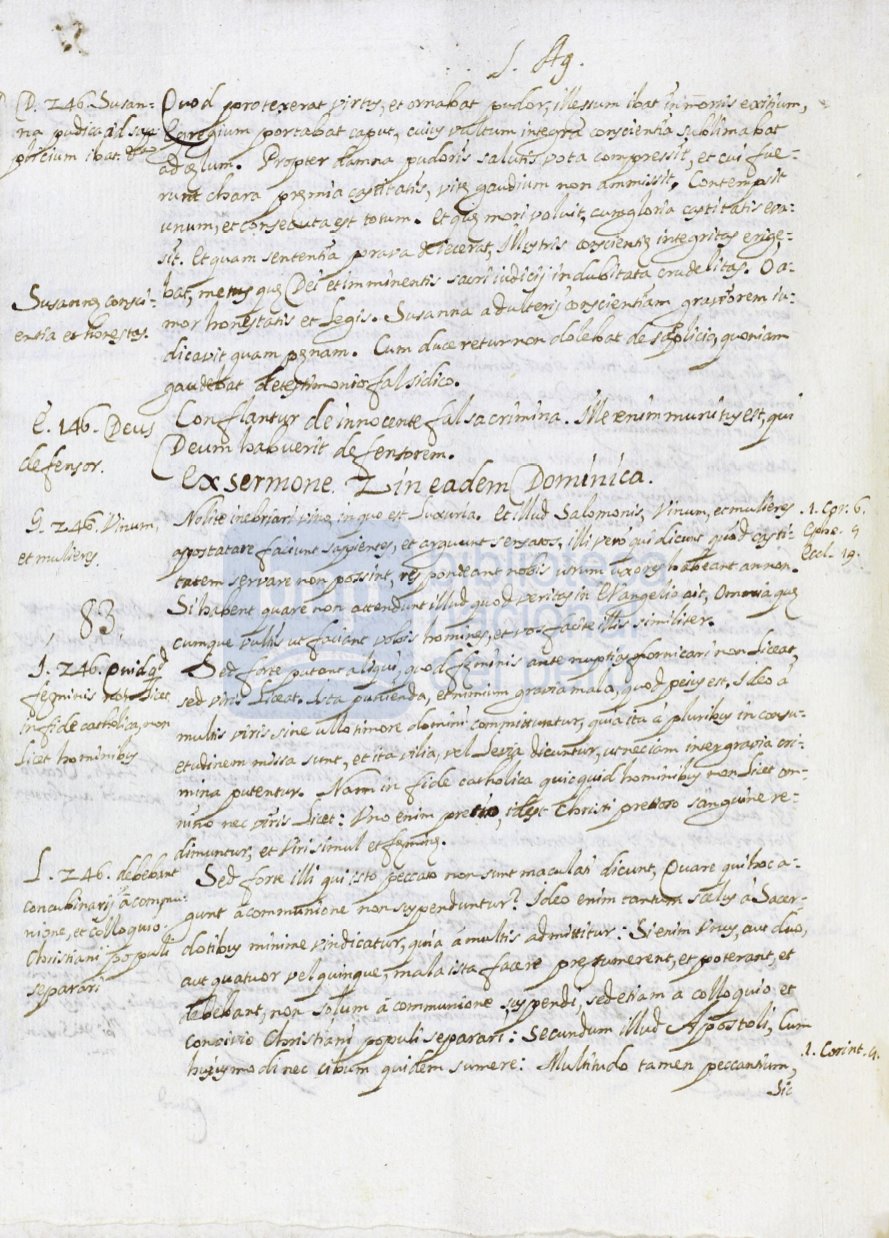 S. Ag.
D. 246. Susan-
na pudica ad sup-
plicium ibat.
Quod protexerat virtus, et ornabat pudor, illessum ibat in mortis exitium,
Egregium portabat caput, cuius vultum integra conscientia sublimabat
ad cęlum. Propter damna pudoris salutis vota compressit, et cui fue-
runt chara pręmia castitatis, vitę gaudium non ammissit. Contempsit
unum, et consecuta est totum. Et quę mori voluit, cum gloria castitatis eva-
sit. Et quam sententia prava deiecerat, illustris conscientię integritas erige-
bat, metus quę Dei et imminentis sacri iudicij indubitata crudelitas. O a-
Susannę consci-
entia et honestas.
mor honestatis et Legis. Susanna adulterij conscientiam graviorem iu-
dicavit quam pęnam. Cum duceretur non dolebat de supplicio, quoniam
gaudebat de testimonio falsidico.
E. 146. Deus
defensor.
Conflantur de innocente falsa crimina. Ille enim munitus est, qui
Deum habuerit defensorem.
Ex sermone. 2 in eadem Dominica.
G. 246. Vinum,
et mulieres.
Nolite inebriari vino, in quo est Luxuria. Et illud Salomonis, Vinum, et mulieres
apostatare faciunt sapientes, et arguunt sensatos, illi vero qui dicunt quod casti-
tatem servare non possint, respondeant nobis utrum uxores habeant an non.
Si habent quare non attendunt illud quod veritas in Evangelio ait, Omnia quę
cumque vultis ut faciant vobis homines, et vos facite illis similiter.
1. Cor. 6.
Ephe. 5
Eccl. 19.
83.
I. 246. quidqd
fęminis non licet
in fide catholica, non
licet hominibus
Sed forte putant aliqui, quod fęminis ante nuptias fornicari non liceat,
sed viris liceat. Ista pudenda, et nimium gravia mala, quod peius est. Ideo a
multis viris sine ullo timore domini committuntur, quia ita a pluribus in consu-
etudinem missa sunt, et ita vilia, vel levia dicuntur, ut nec iam inter gravia cri-
mina putentur. Nam in fide catholica quicquid hominibus non licet om-
nino nec viris licet: Uno enim pretio, idest Christi pretioso sanguine re-
dimuntur, et viri simul et fęminę.
L. 246. debebant
concubinarij a commu-
nione, et colloquio
Christiani populi
separari
Sed forte illi qui isto peccato non sunt maculati dicunt, Quare qui hoc a-
gunt a communione non suspenduntur? Ideo enim tantum scelus a Sacer-
dotibus minime vindicatur, quia a multis admittitur: Si enim Unus, aut duo,
aut quatuor vel quinque, mala ista facere pręsumerent, et poterant, et
debebant, non solum a communione suspendi, sed etiam a colloquio et
convivio Christiani populi separari: Secundum illud Apostoli, Cum
huiusmodi nec cibum quidem sumere: Multitudo tamen peccantium,
1. Corint.
Sic
biblioteca
nacional
del perú